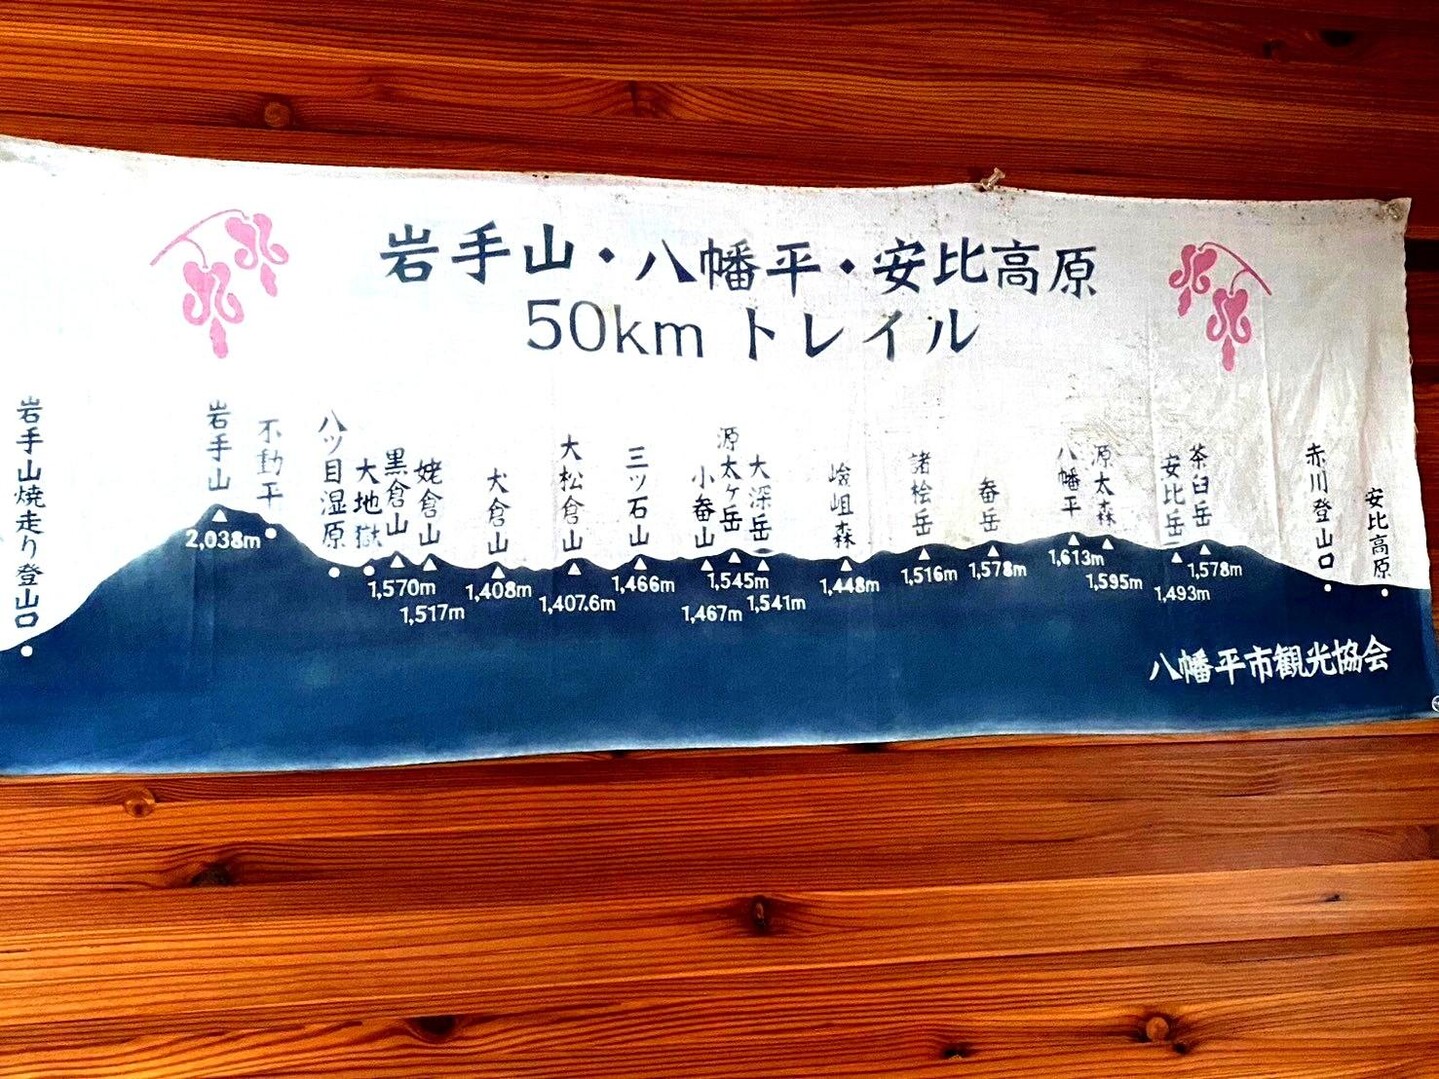 岩手山・八幡平・安比高原
50km トレイル
岩手山焼走り登山口
岩手山
2,038m
不動平
八ツ目湿原
大地獄
黒倉山
1,570m
姥倉山
1,517m
犬倉山
1,408m
大松倉山
1,407.6m
三ツ石山
1,466m
小畚山
1,467m
源太ヶ岳
1,545m
大深岳
1,541m
嶮岨森
1,448m
諸桧岳
1,516m
畚岳
1,578m
八幡平
1,613m
源太森
1,595m
安比岳
1,493m
茶臼岳
1,578m
赤川登山口
安比高原
八幡平市観光協会